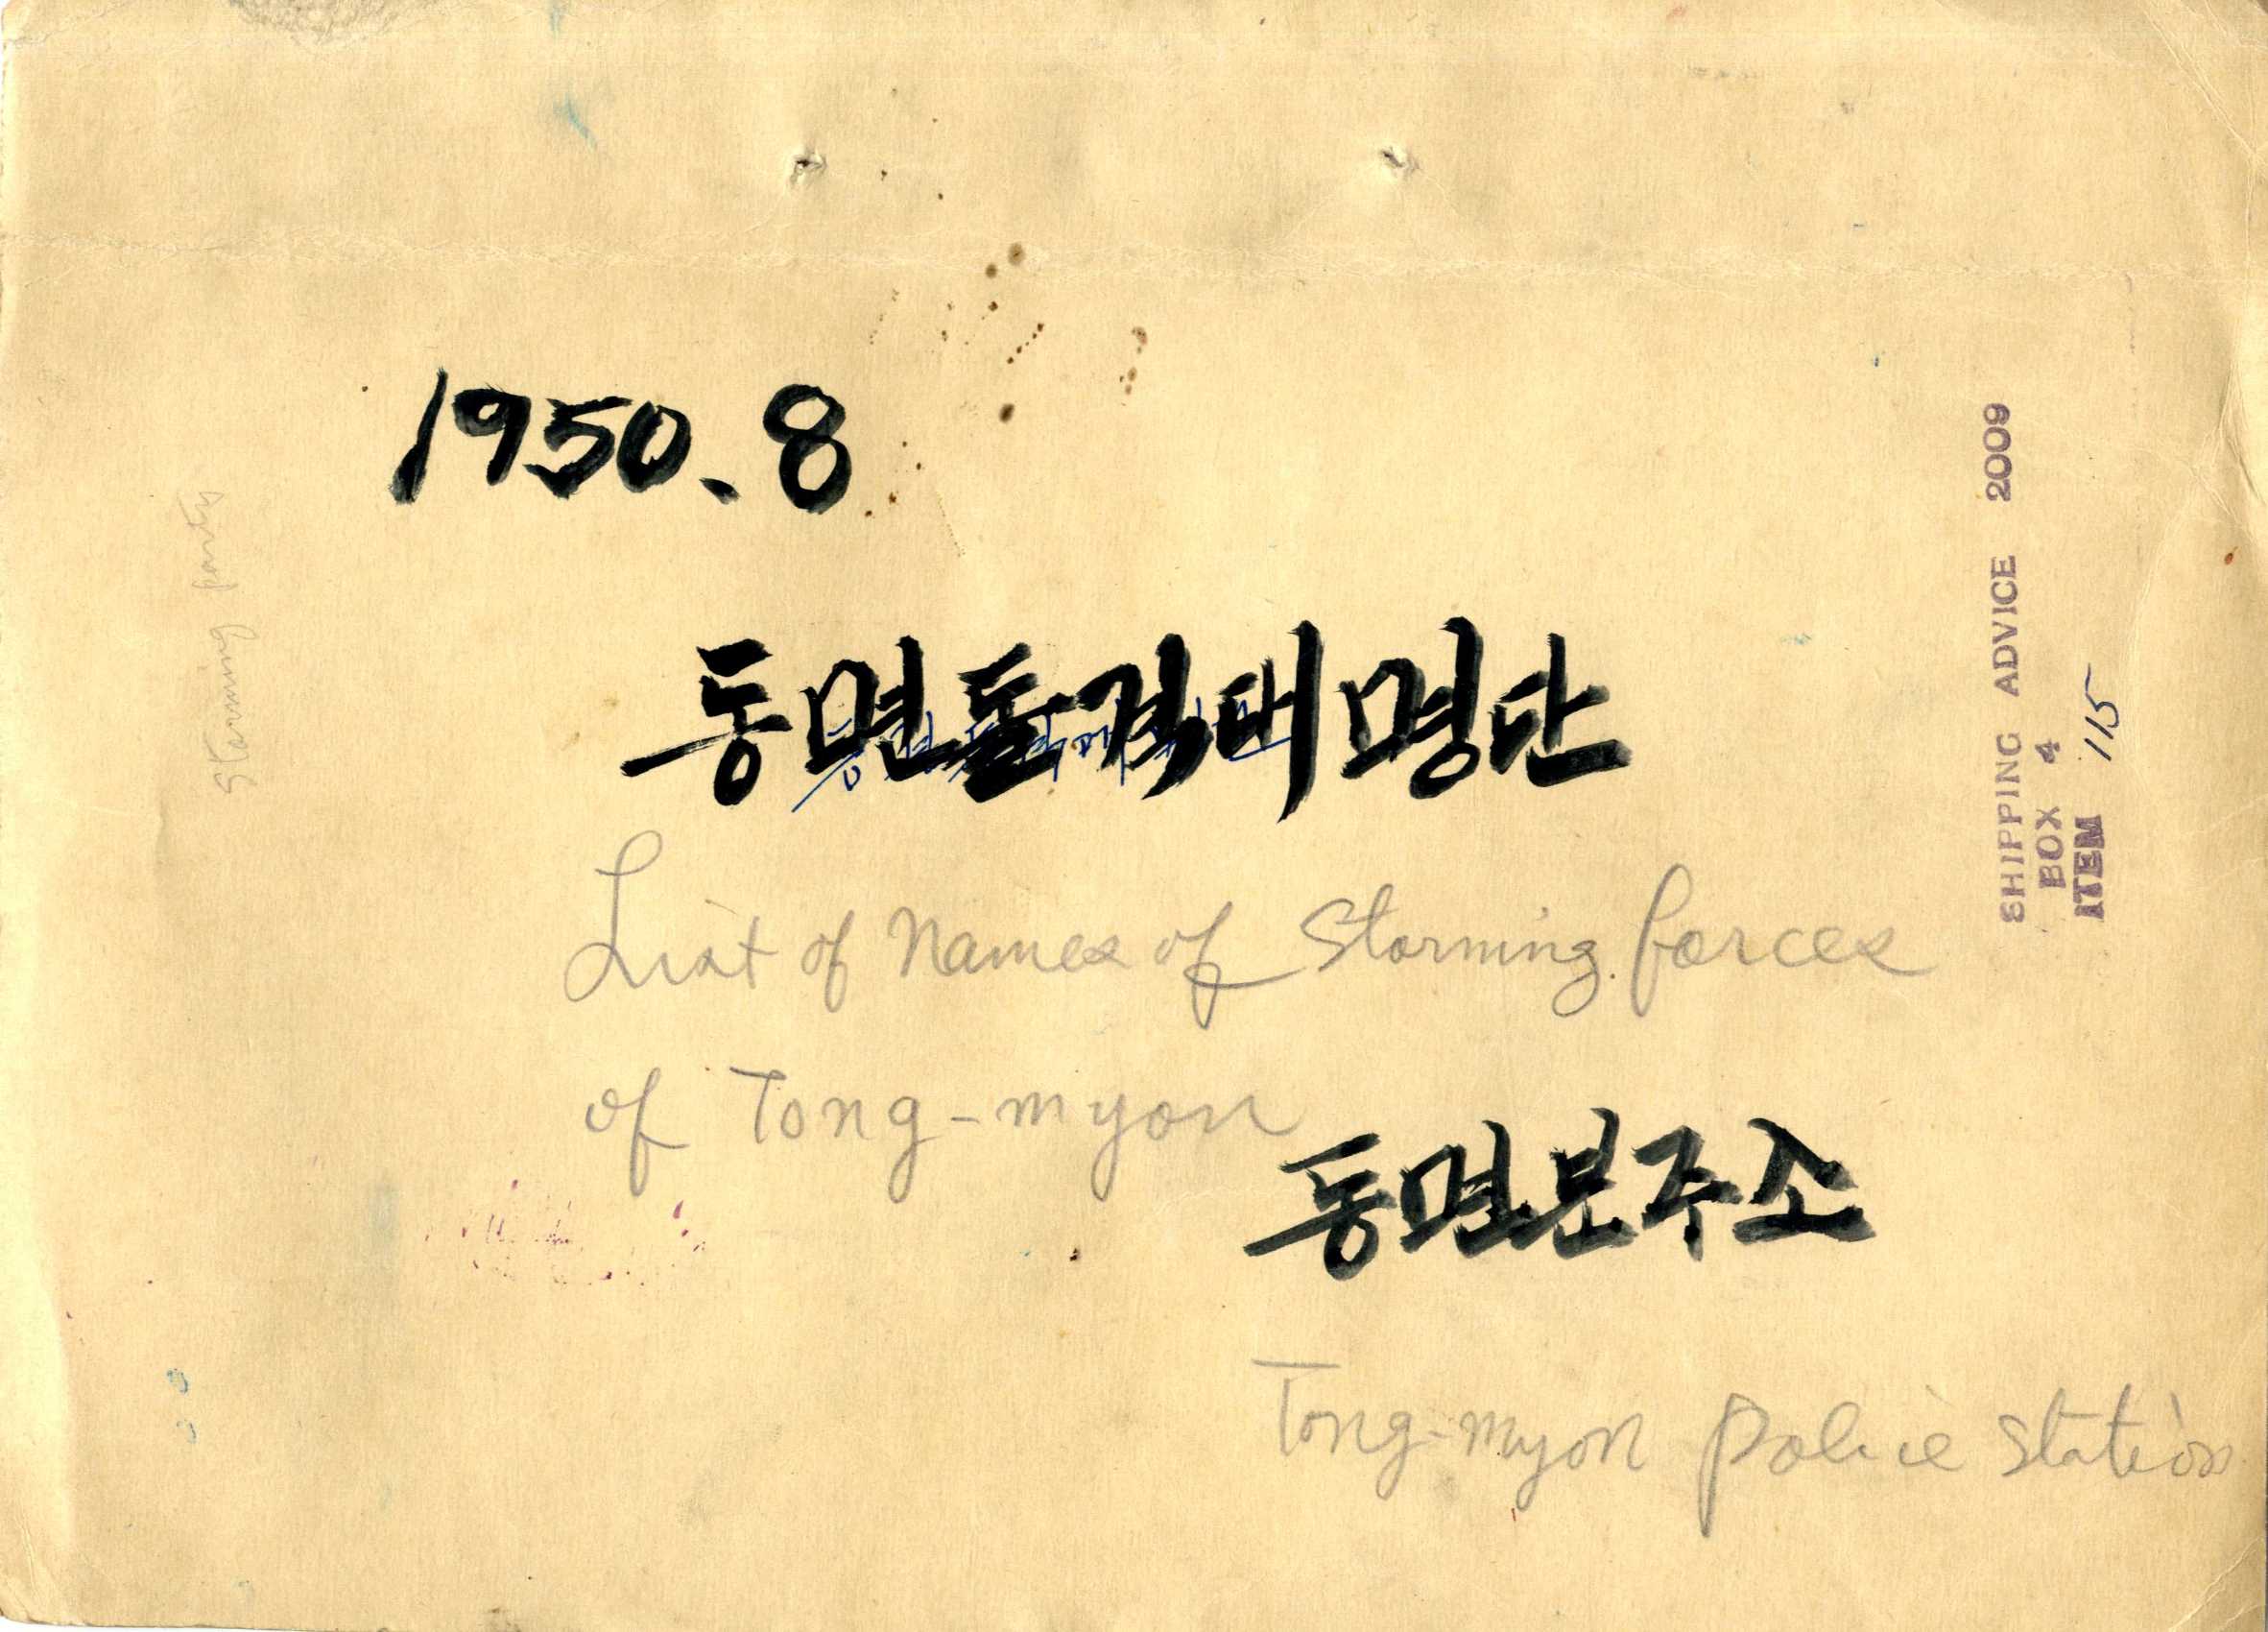 1950.8
동면돌격대명단
List of names of Storming forces
of Tong-myon
동면분주소
Tong-myon police station
Storming party
SHIPPING ADVICE 2009
BOX 4
ITEM 115